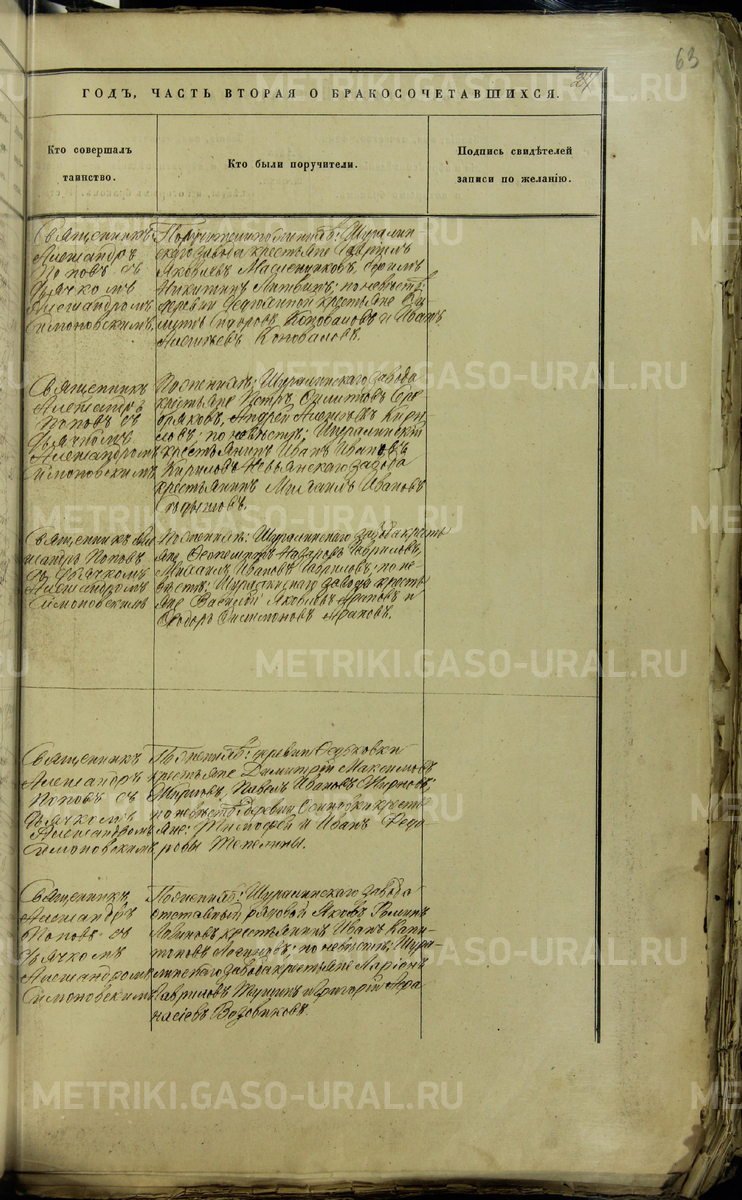 63
ГОДЪ, ЧАСТЬ ВТОРАЯ О БРАКОСОЧЕТАВШИХСЯ.
Кто совершалъ
таинство.
Кто были поручители.
Подпись свидѣтелей
записи по желанію.
Священникъ
Александръ
Поповъ съ
дьячкомъ
Александромъ
Симоновскимъ.
Шуралин
скаго завода крестьяне Гавріилъ
Яковлевъ Масленниковъ, Ефимъ
Никитинъ по невѣстѣ:
деревни крестьяне
Сидоровъ Коноваловъ и Иванъ
Алексѣевъ Коноваловъ.
Священникъ
Александръ
Поповъ съ
дьячкомъ
Александромъ
Симоновскимъ
По женихѣ: Шуралинскаго завода
крестьяне Петръ Филиповъ Сере
бряковъ, Андрей Алексѣевъ Кири
ловъ; по невѣстѣ: Шуралинскій
крестьянинъ Иванъ Ивановъ
Кириловъ Невьянскаго завода
крестьянинъ Михаилъ Ивановъ
Священникъ Але
ксандръ Поповъ
съ дьячкомъ
Александромъ
Симоновскимъ
По женихѣ: Шуралинскаго завода кресть
яне Назаровъ Гавриловъ,
Михаилъ Ивановъ Гавриловъ; по не
вѣстѣ: Шуралинскаго завода кресть
яне Василій Яковлевъ Араповъ и
Ѳедоръ Филимоновъ Араповъ.
Священникъ
Александръ
Поповъ съ
дьячкомъ
Александромъ
Симоновскимъ
По женихѣ: деревни Ѳедьковки
крестьяне Димитрій Максимовъ
Павелъ Ивановъ
по невѣстѣ деревни Осиповки крестья
яне: Тимофей и Иванъ Ѳедо
ровы Тепелины.
Священникъ
Александръ
Поповъ съ
дьячкомъ
Александромъ
Симоновскимъ
По женихѣ: Шуралинскаго завода
отставный рядовой Яковъ
Логиновъ, крестьянинъ Иванъ Капи
тоновъ Логиновъ; по невѣстѣ: Шура
линскаго завода крестьяне Ларіонъ
Гавриловъ и Григорій Афа
насіевъ Возовиковъ.
METRIKI.GASO-URAL.RU